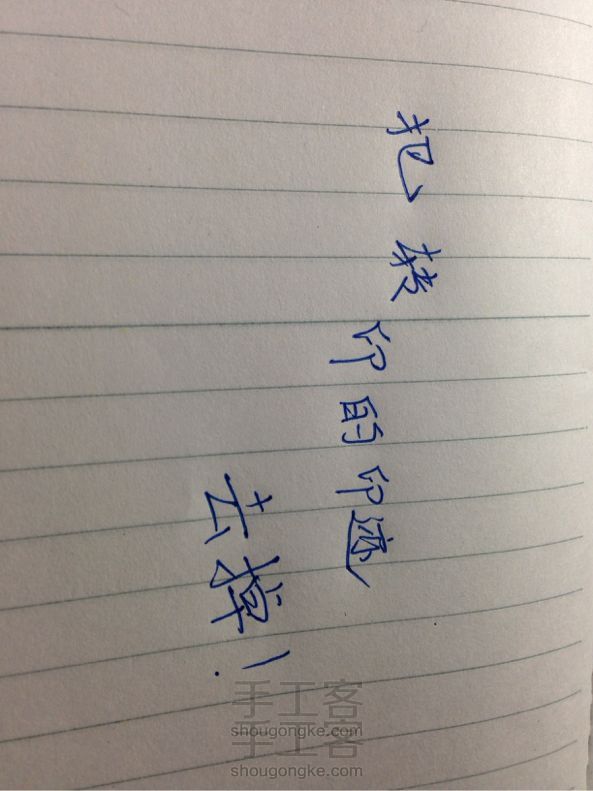 把转
印的印迹
去掉！
手工客
shougongke.com
手工客
shougongke.com